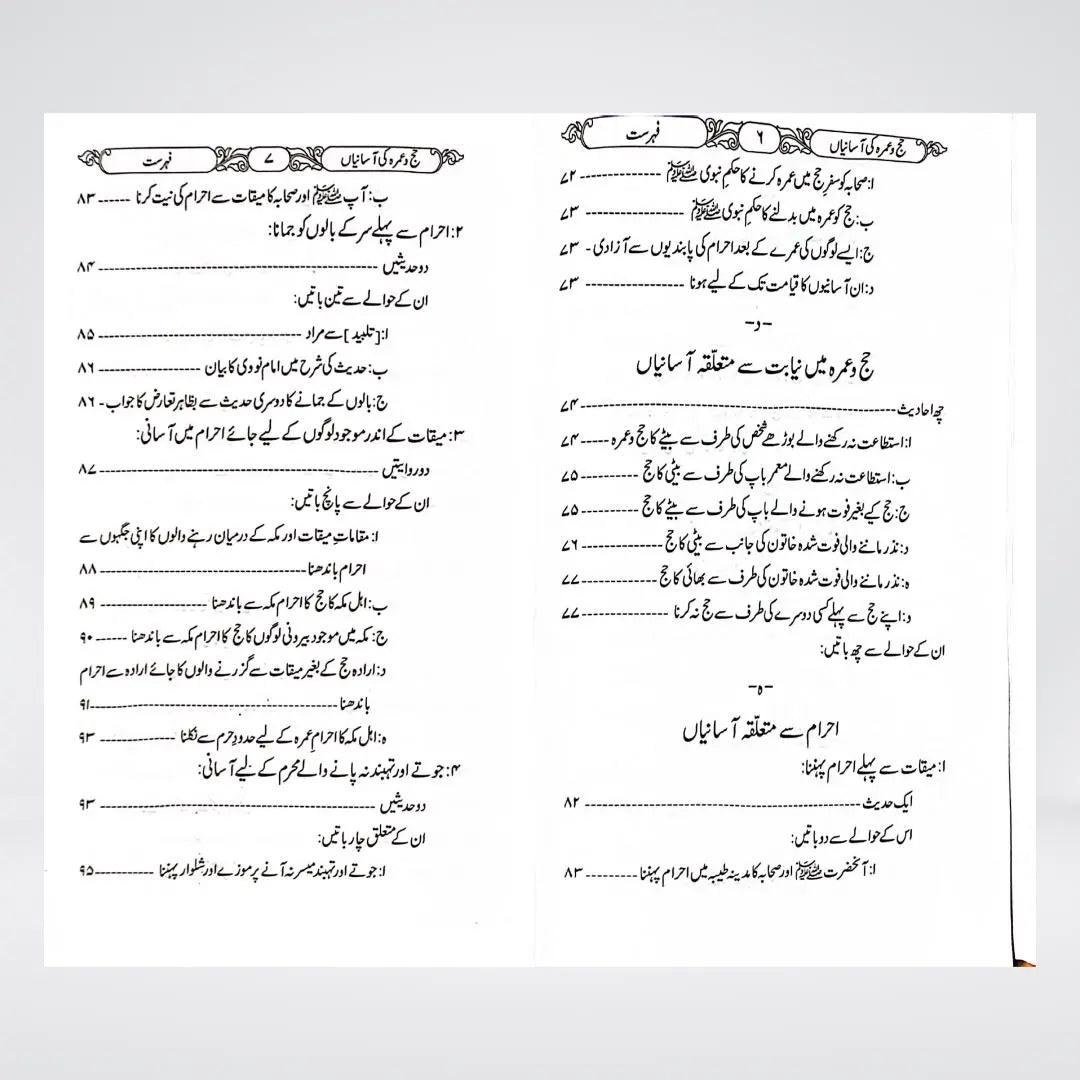 حج و عمرہ کی آسانیاں ۶ فہرست
ا: صحابہ کو سفرِ حج میں عمرہ کرنے کا حکمِ نبوی ﷺ ------------- ۷۲
ب: حج کو عمرہ میں بدلنے کا حکمِ نبوی ﷺ --------------- ۷۳
ج: ایسے لوگوں کی عمرے کے بعد احرام کی پابندیوں سے آزادی - ۷۳
د: ان آسانیوں کا قیامت تک کے لیے ہونا --------------- ۷۳
-د-
حج و عمرہ میں نیابت سے متعلّقہ آسانیاں
چھ احادیث ------------------------------------------------ ۷۴
ا: استطاعت نہ رکھنے والے بوڑھے شخص کی طرف سے بیٹے کا حج و عمرہ ----- ۷۴
ب: استطاعت نہ رکھنے والے معمر باپ کی طرف سے بیٹی کا حج --------- ۷۵
ج: حج کیے بغیر فوت ہونے والے باپ کی طرف سے بیٹے کا حج --------- ۷۵
د: نذر ماننے والی فوت شدہ خاتون کی جانب سے بیٹی کا حج ------------ ۷۶
ہ: نذر ماننے والی فوت شدہ خاتون کی طرف سے بھائی کا حج ----------- ۷۷
و: اپنے حج سے پہلے کسی دوسرے کی طرف سے حج نہ کرنا ------------- ۷۷
ان کے حوالے سے چھ باتیں:
-ہ-
احرام سے متعلّقہ آسانیاں
ا: میقات سے پہلے احرام پہننا:
ایک حدیث ------------------------------------------ ۸۲
اس کے حوالے سے دو باتیں:
ا: آنحضرت ﷺ اور صحابہ کا مدینہ طیبہ میں احرام پہننا --------- ۸۳
حج و عمرہ کی آسانیاں ۷ فہرست
ب: آپ ﷺ اور صحابہ کا میقات سے احرام کی نیت کرنا ------ ۸۳
۲: احرام سے پہلے سر کے بالوں کو جمانا:
دو حدیثیں ------------------------------------------ ۸۴
ان کے حوالے سے تین باتیں:
ا: [تلبید] سے مراد ------------------------------- ۸۵
ب: حدیث کی شرح میں امام نووی کا بیان ---------------- ۸۶
ج: بالوں کے جمانے کا دوسری حدیث سے بظاہر تعارض کا جواب - ۸۶
۳: میقات کے اندر موجود لوگوں کے لیے جائے احرام میں آسانی:
دو روایتیں ------------------------------------------ ۸۷
ان کے حوالے سے پانچ باتیں:
ا: مقاماتِ میقات اور مکہ کے درمیان رہنے والوں کا اپنی جگہوں سے
احرام باندھنا -------------------------------- ۸۸
ب: اہل مکہ کا حج کا احرام مکہ سے باندھنا ---------------- ۸۹
ج: مکہ میں موجود بیرونی لوگوں کا حج کا احرام مکہ سے باندھنا ------ ۹۰
د: ارادہ حج کے بغیر میقات سے گزرنے والوں کا جائے ارادہ سے احرام
باندھنا -------------------------------------- ۹۱
ہ: اہل مکہ کا احرامِ عمرہ کے لیے حدودِ حرم سے نکلنا ------------ ۹۳
۴: جوتے اور تہبند نہ پانے والے محرم کے لیے آسانی:
دو حدیثیں ------------------------------------------ ۹۳
ان کے متعلق چار باتیں:
ا: جوتے اور تہبند میسر نہ آنے پر موزے اور شلوار پہننا ----------- ۹۵